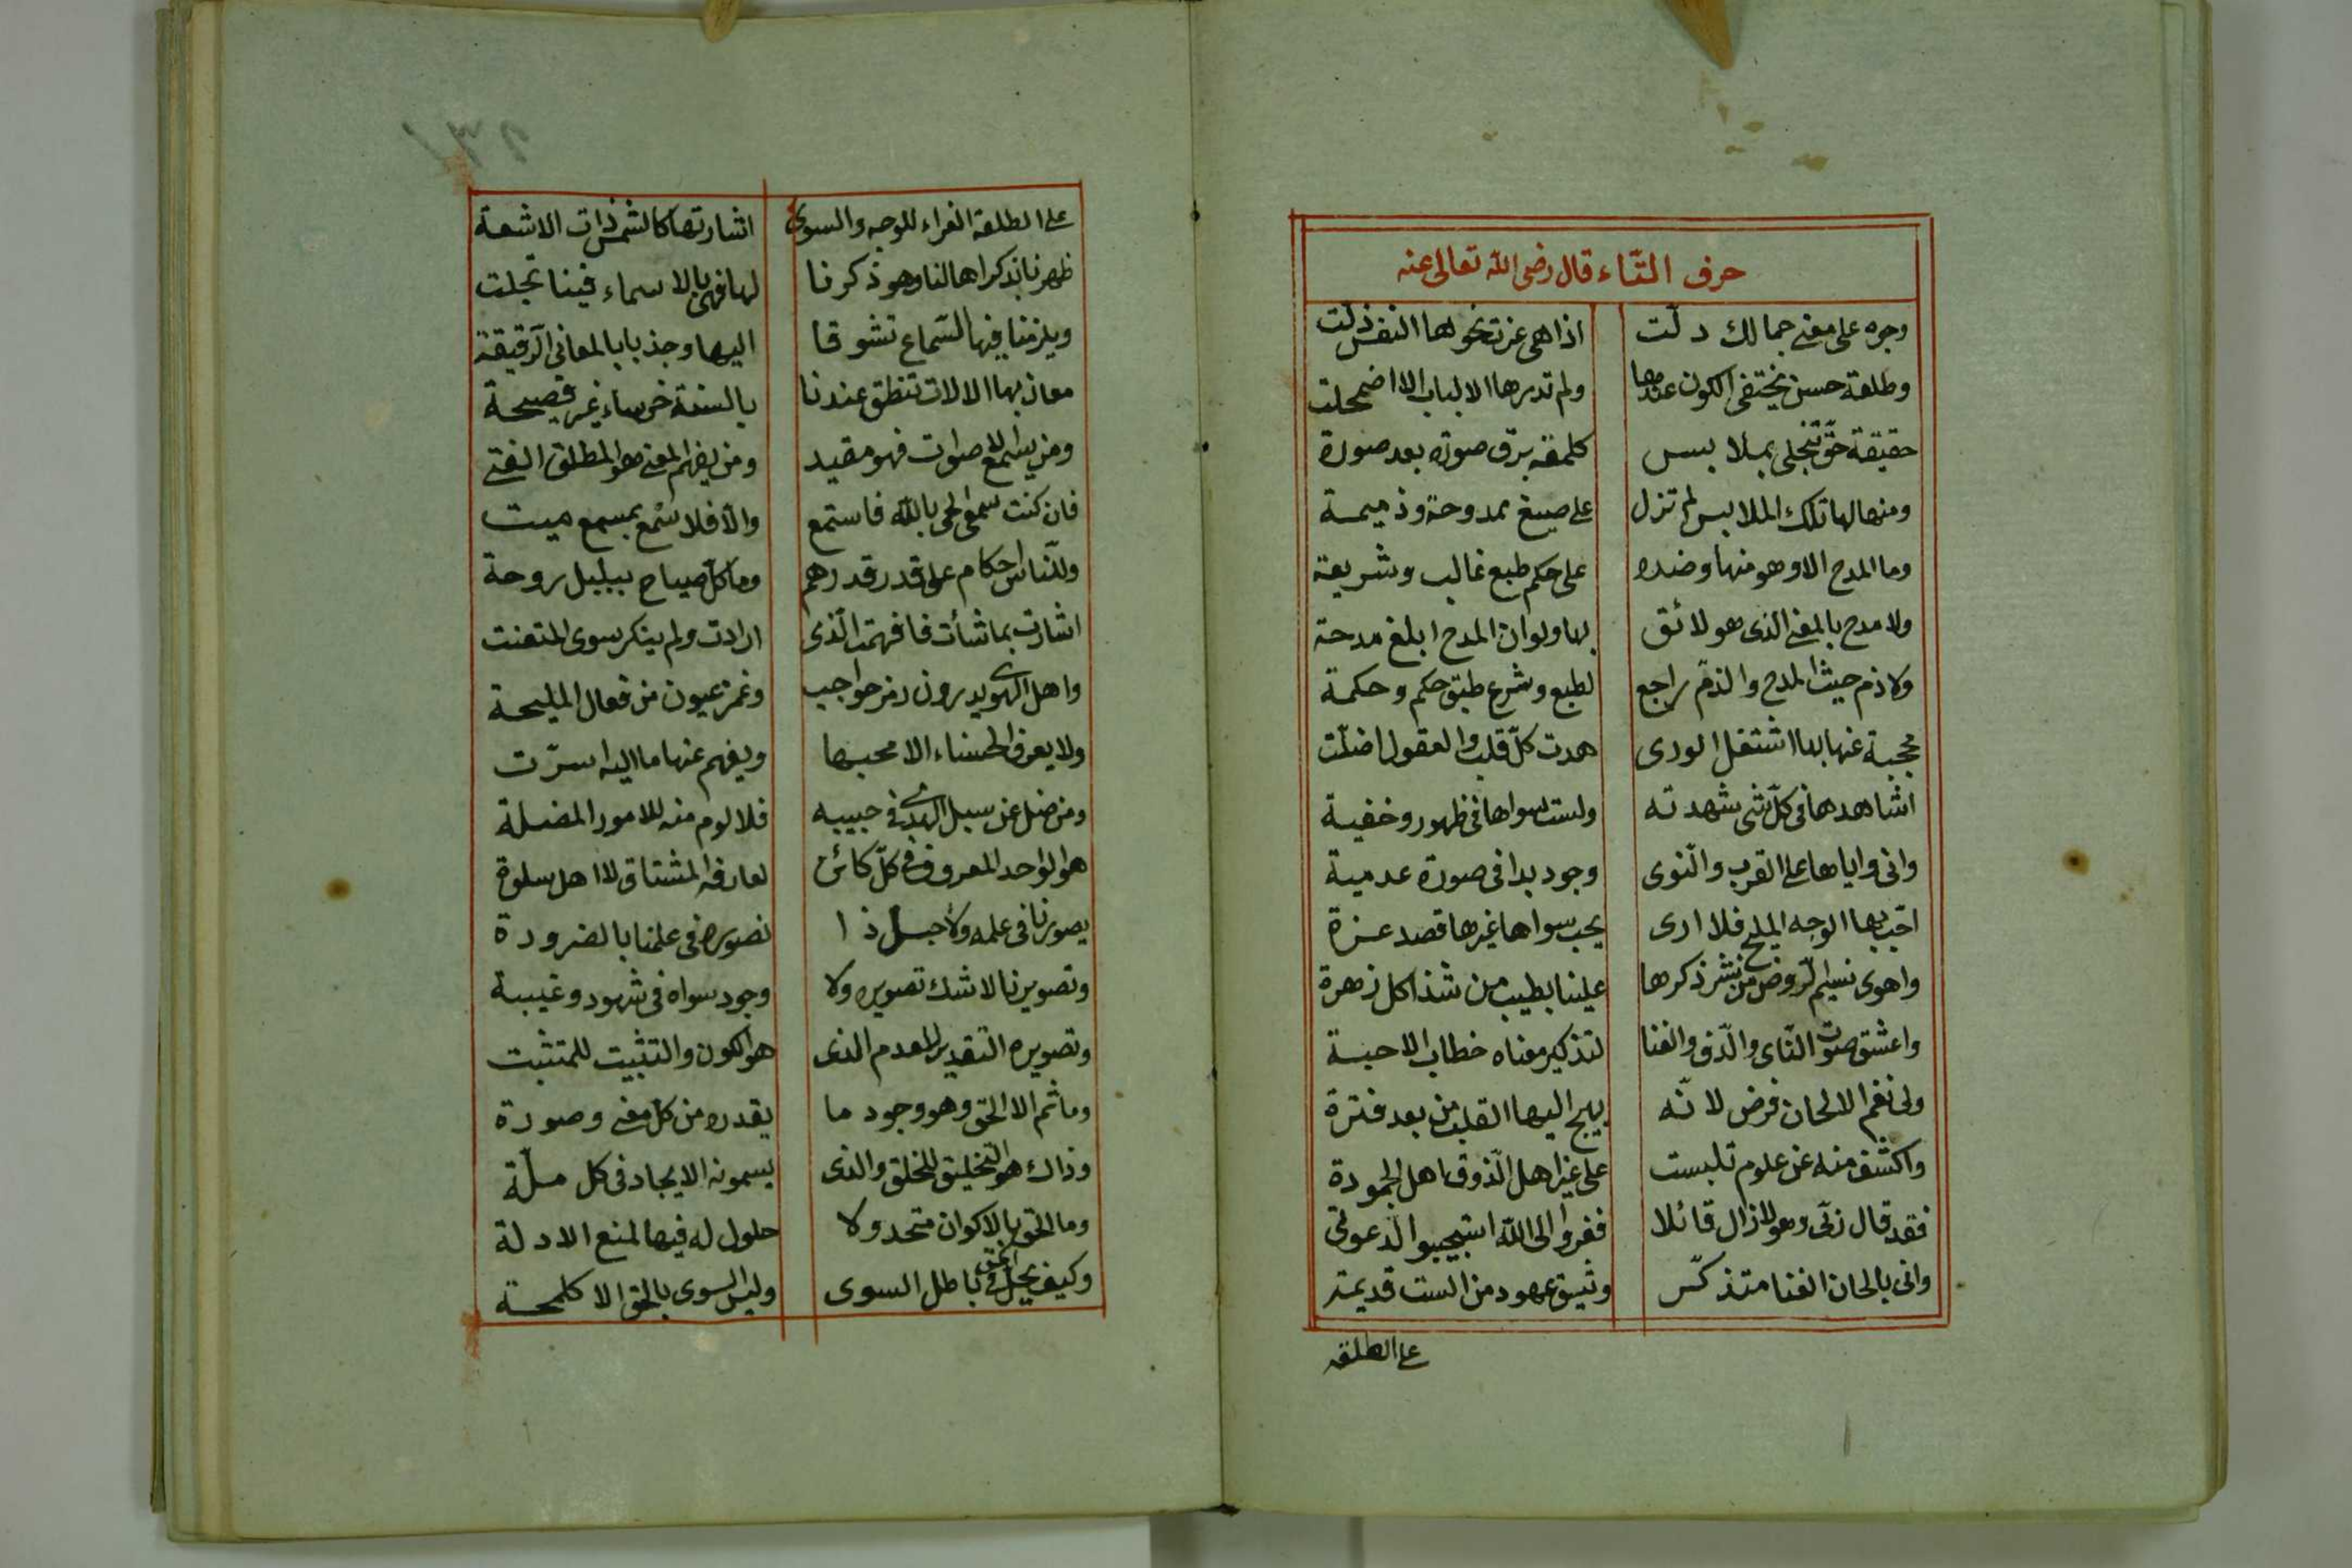 حرف التّاء قال رضى الله تعالى عنه
وجوه على معنى جمالك دلّت اذا هى عزت نحولها النفس ذلت
وطلعة حسن يختفى الكون عندها ولم تدرها الالباب الا اضمحلت
حقيقة حقّ تنجلى بملابس كلمعة برق صورة بعد صورة
ومنها لها تلك الملابس لم تزل على صيغ ممدوحة وذميمة
وما المدح الا وهو منها وضده على حكم طبع غالب وشريعة
ولا مدح بالمعنى الذى هو لائق بها ولو ان المدح ابلغ مدحة
ولا ذم حيث المدح والذمّ راجع لطبع وشرع طبق حكم وحكمة
محجبة عنها بها اشتغل الورى هدت كلّ قلب والعقول اضلّت
اشاهدها فى كلّ شئ شهدته ولست سواها فى ظهور وخفية
وانى واياها على القرب والنّوى وجود بدا فى صورة عدمية
احّب بها الوجه المليح فلا ارى يحب سواها غيرها قصد عزة
واهوى نسيم الرّوض من نشر ذكرها علينا بطيب من شذا كل زهرة
واعشق صوت النّاى والدّف والغنا لتذكير معناه خطاب الاحبة
ولى نغم الالحان فرض لانّه يهيج اليها القلب من بعد فترة
واكشف منه عن علوم تلبست على غير اهل الذّوق اهل الجمودة
فقد قال ربّى وهو لا زال قائلا ففروا الى الله استجيبوا لدعوتى
وانى بالحان الغنا متذكّر وثيق عهود من الست قديمة
على الطلعة
على الطلعة الغراء للوجه والسوى اشارتها كالشمس ذات الاشعة
ظهرنا بذكراها لنا وهو ذكرنا لها فهى بالاسماء فينا تجلت
ويلزمنا فيها السّماع تشوقا اليها وجذبا بالمعانى الرّقيقة
معان بها الالات تنطق عندنا بالسنة خرساء غير فصيحة
ومن يسمع الاصوات فهو مقيد ومن يفهم المعنى هو المطلق الفتى
فان كنت سمعى لحى بالله فاستمع والّا فلا تسمع بمسمع ميت
وللنّاس احكام على قدر قدرهم وما كلّ صياح ببلبل روحة
اشارت بما شأت فافهمت الّذى ارادت ولم ينكر سوى المتعنت
واهل الهوى يدرون رمز حواجب وغمز عيون من فعال المليحة
ولا يعرف الحسناء الا محبها ويفهم عنها ما اليه اسرّت
ومن ضل عن سبل الهدى فى حبيبه فلا لوم منه للامور المضلة
هو الواحد المعروف فى كلّ كائن لعارفه المشتاق لا اهل سلوة
يصورنا فى علمه ولاجل ذا نصوره فى علمنا بالضرورة
وتصويرنا لا شك تصويره ولا وجود سواه فى شهود وغيبة
وتصويره التقدير للعدم الذى هو الكون والتثبيت للمتثبت
وما ثم الا الحق وهو وجود ما يقدره من كل معنى وصورة
وذاك هو التخليق للخلق والذى يسمونه الايجاد فى كل ملّة
وما الحق بالاكوان متحد ولا حلول له فيها لمنع الادلة
وكيف يحلّ الحق فى باطل السوى وليس السوى بالحق الا كلمحة